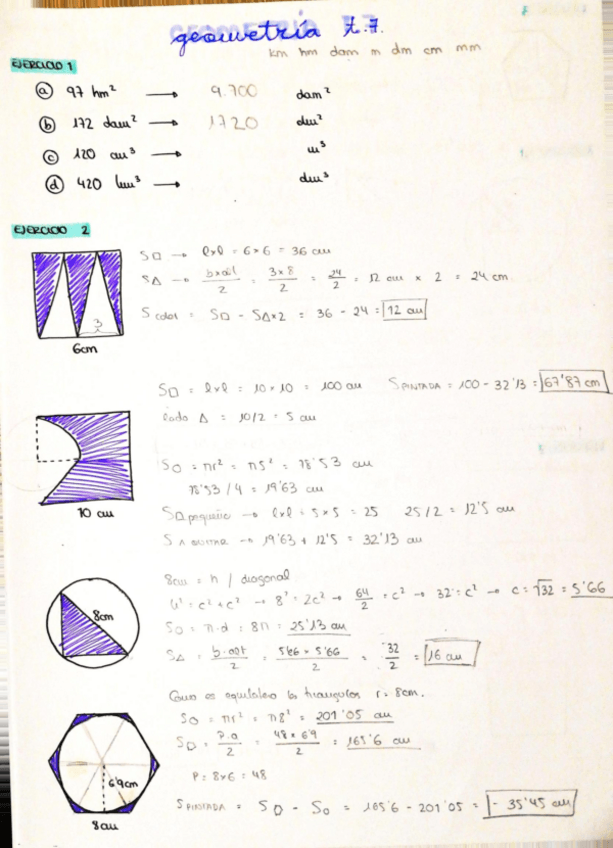 geometría t.7.
km hm dam m dm cm mm
EJERCICIO 1
a 97 hm² → 9.700 dam²
b 172 dam² → 1720 dm²
c 120 cm³ → m³
d 420 hm³ → dm³
EJERCICIO 2
S□ → l×l = 6×6 = 36 cm
S△ → b×alt/2 = 3×8/2 = 24/2 = 12 cm × 2 = 24 cm
3
S color = S□ - S△×2 = 36 - 24 = 12 cm
6cm
S□ = l×l = 10×10 = 100 cm S PINTADA = 100 - 32'13 = 67'87 cm
lado △ = 10/2 = 5 cm
S○ = πr² = π5² = 78'53 cm
78'53/4 = 19'63 cm
10 cm
S□ pequeño → l×l = 5×5 = 25 25/2 = 12'5 cm
S A QUITAR → 19'63 + 12'5 = 32'13 cm
8cm = h / diagonal
h² = c² + c² → 8² = 2c² → 64/2 = c² → 32 = c² → c = √32 = 5'66
8cm
S○ = π·d = 8π = 25'13 cm
S△ = b·alt/2 = 5'66 × 5'66/2 = 32/2 = 16 cm
Como es equilátero los triangulos r = 8cm.
S○ = πr² = π8² = 201'05 cm
S = P.a/2 = 48×6'9/2 = 165'6 cm
6'9cm
P = 8×6 = 48
8cm
S PINTADA = S - S○ = 165'6 - 201'05 = - 35'45 cm